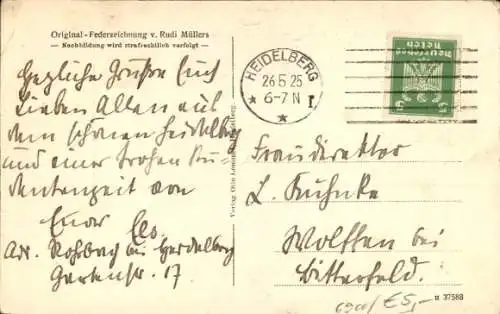 Original-Federzeichnung v. Rudi Müllers
— Nachbildung wird strafrechtlich verfolgt —
Herzliche Grüße Euch
Lieben Allen aus
dem schönen Heidelberg
und einer frohen Stu-
dentenzeit von
Euer
Adr. Rohrbach bei Heidelberg
Gartenstr. 17
Verlag Otto
HEIDELBERG
26.5.25
6-7 N
1.
Deutsches
Reich
5
5
Frau Direktor
L. Kuhnke
Wolffen bei
Bitterfeld.
€5,-
n 37588